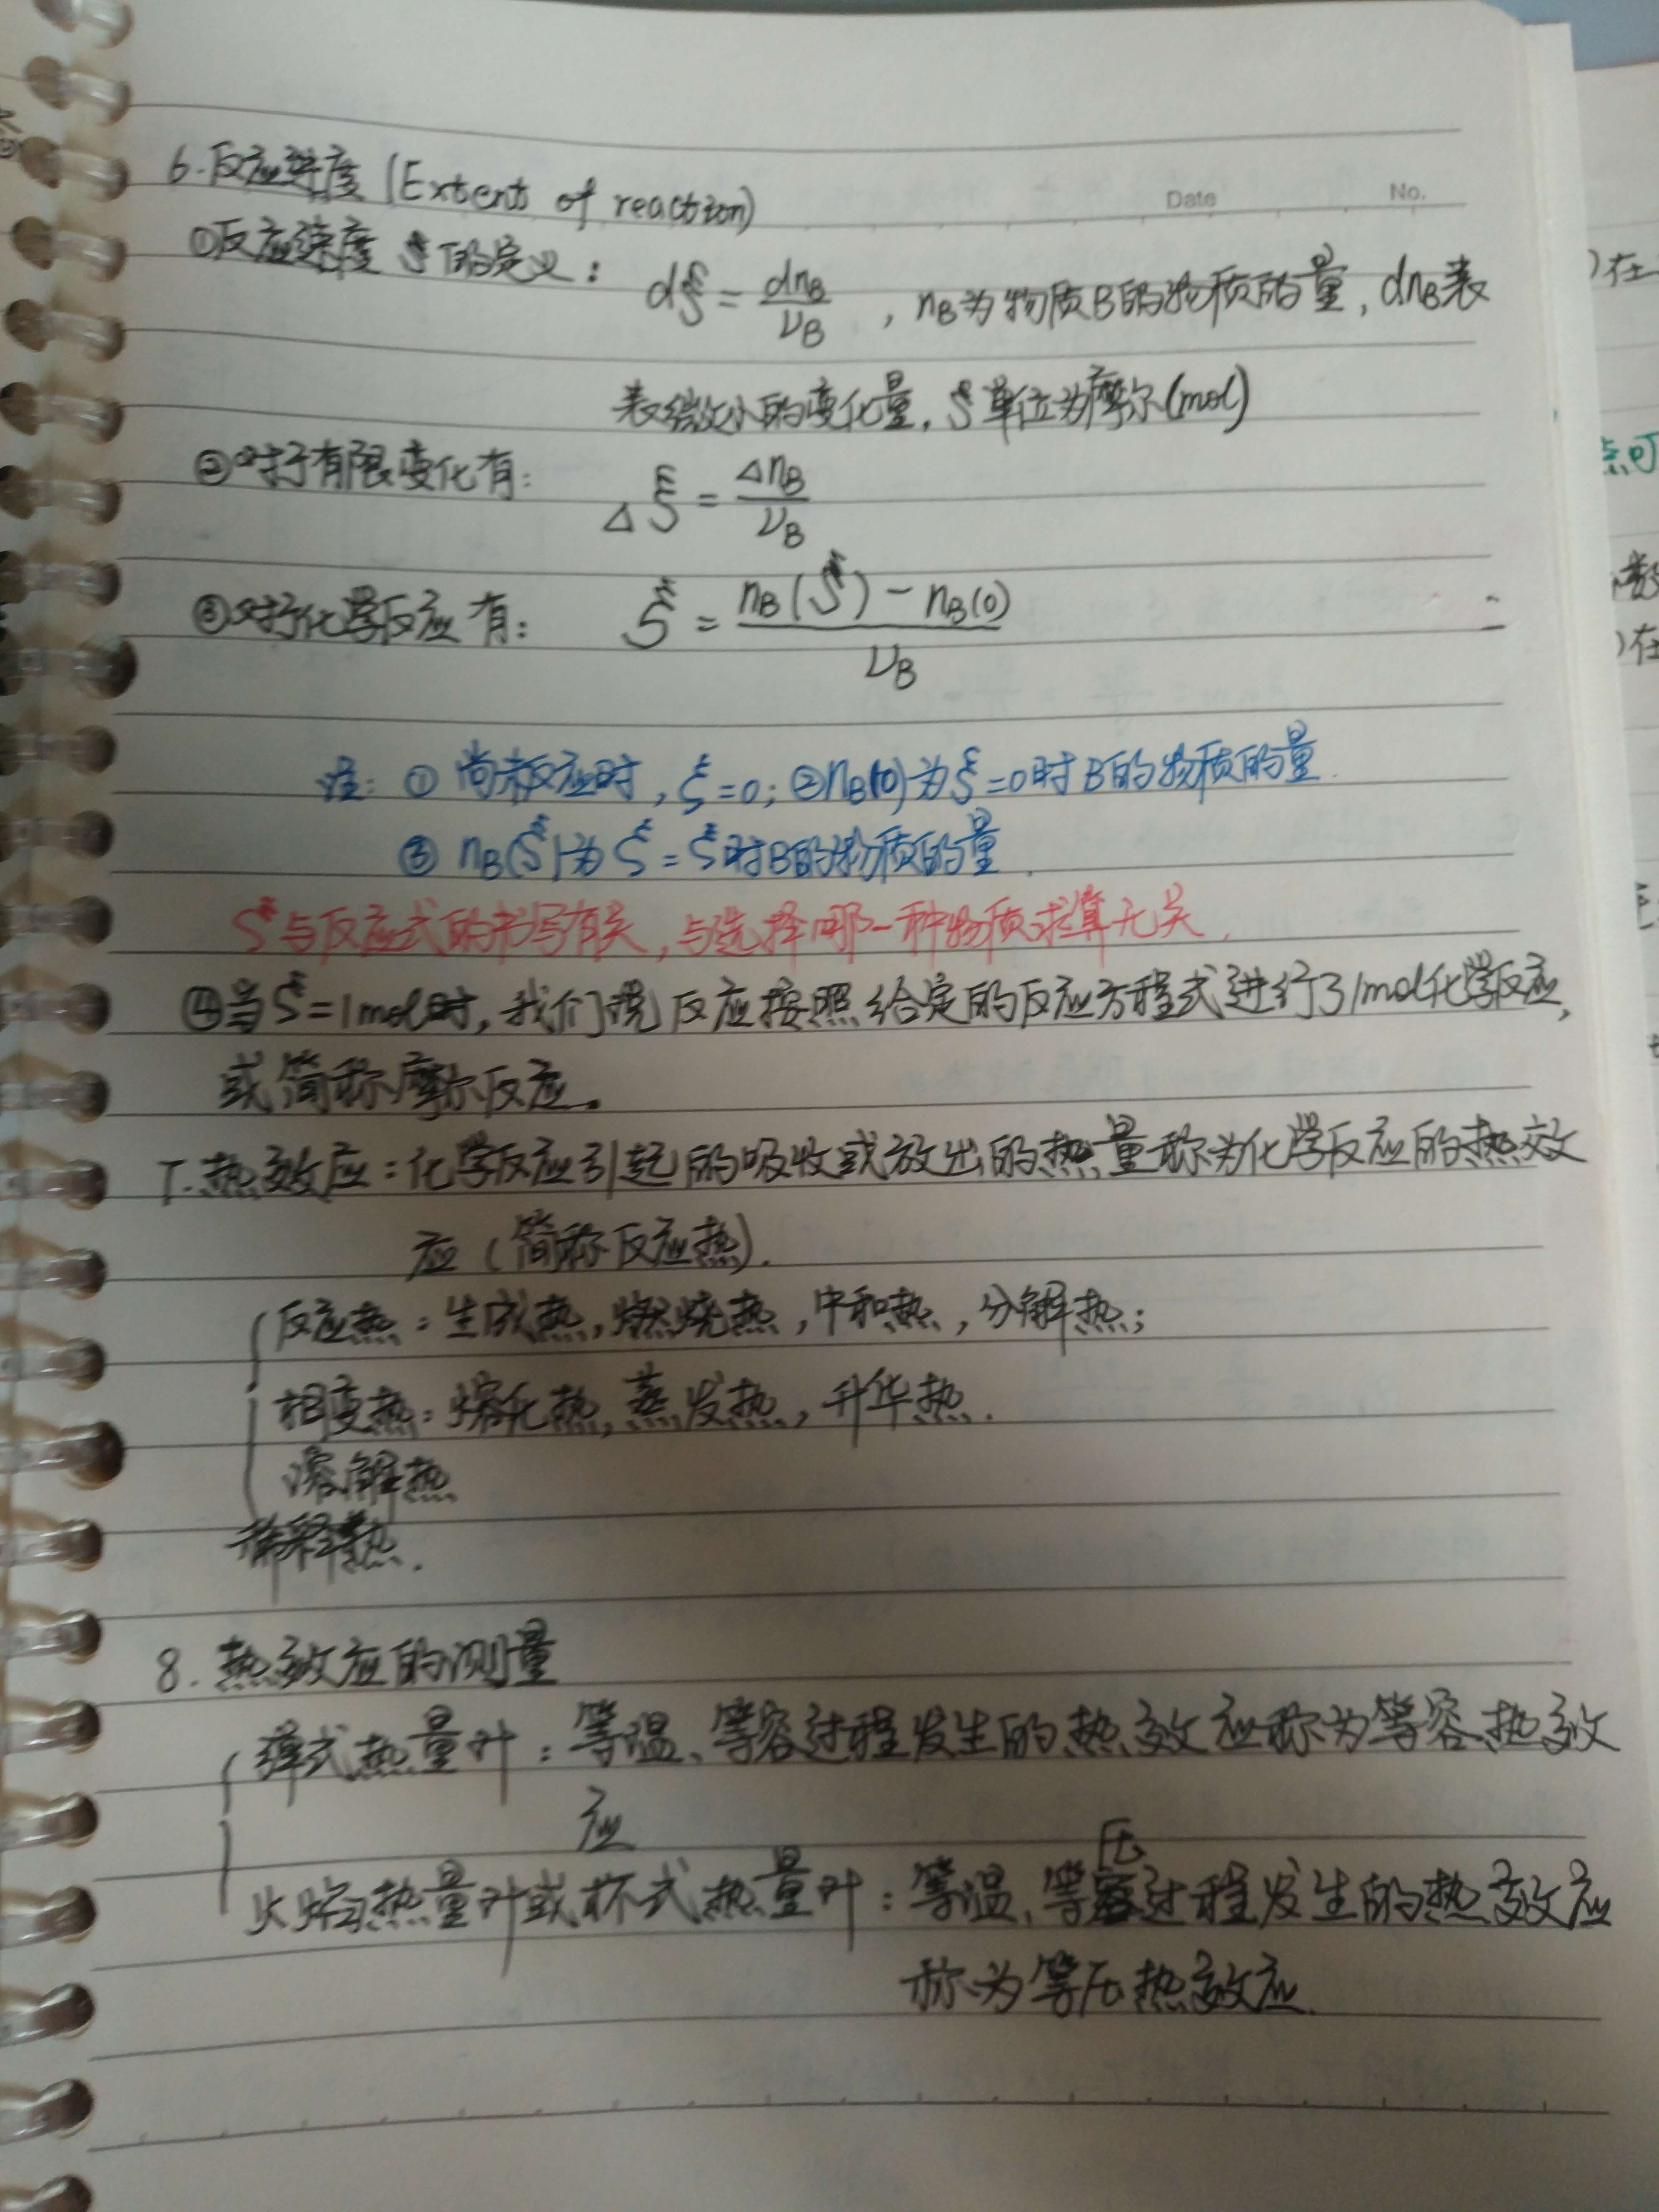 Date No.
6.反应进度(Extent of reaction)
①反应进度ξ的定义: dξ = dnB/νB , nB为物质B的物质的量, dnB表
表微小的变化量, ξ单位为摩尔(mol)
②对于有限变化有: Δξ = ΔnB/νB
③对于化学反应有: ξ = (nB(ξ) - nB(0))/νB
注: ① 尚未反应时, ξ=0; ②nB(0)为ξ=0时B的物质的量.
③ nB(ξ)为ξ=ξ时B的物质的量.
ξ与反应式的书写有关, 与选择哪一种物质求算无关.
④当ξ=1mol时, 我们说反应按照给定的反应方程式进行了1mol化学反应,
或简称摩尔反应.
7.热效应: 化学反应引起的吸收或放出的热量称为化学反应的热效
应(简称反应热).
反应热: 生成热, 燃烧热, 中和热, 分解热;
相变热: 熔化热, 蒸发热, 升华热.
溶解热
稀释热.
8. 热效应的测量
弹式热量计: 等温、等容过程发生的热效应称为等容热效
应
火焰热量计或杯式热量计: 等温、等压过程发生的热效应
称为等压热效应.
)在
点可
)在